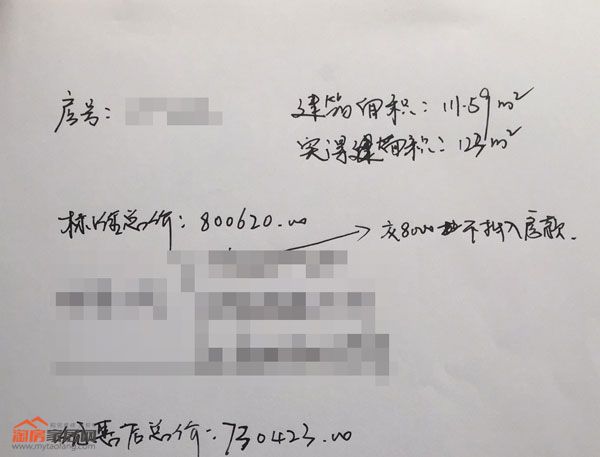 房号:
建筑面积: 111.59m²
实得建面积: 123m²
标准总价: 800620.00
交8000 不抵入房款.
优惠后总价: 730423.00
淘房家居网
www.mytaofang.com